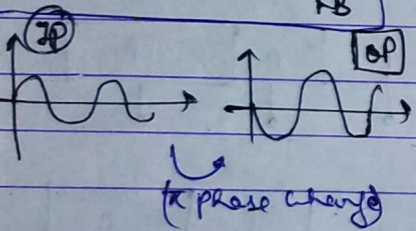 IP
OP
(π phase change)